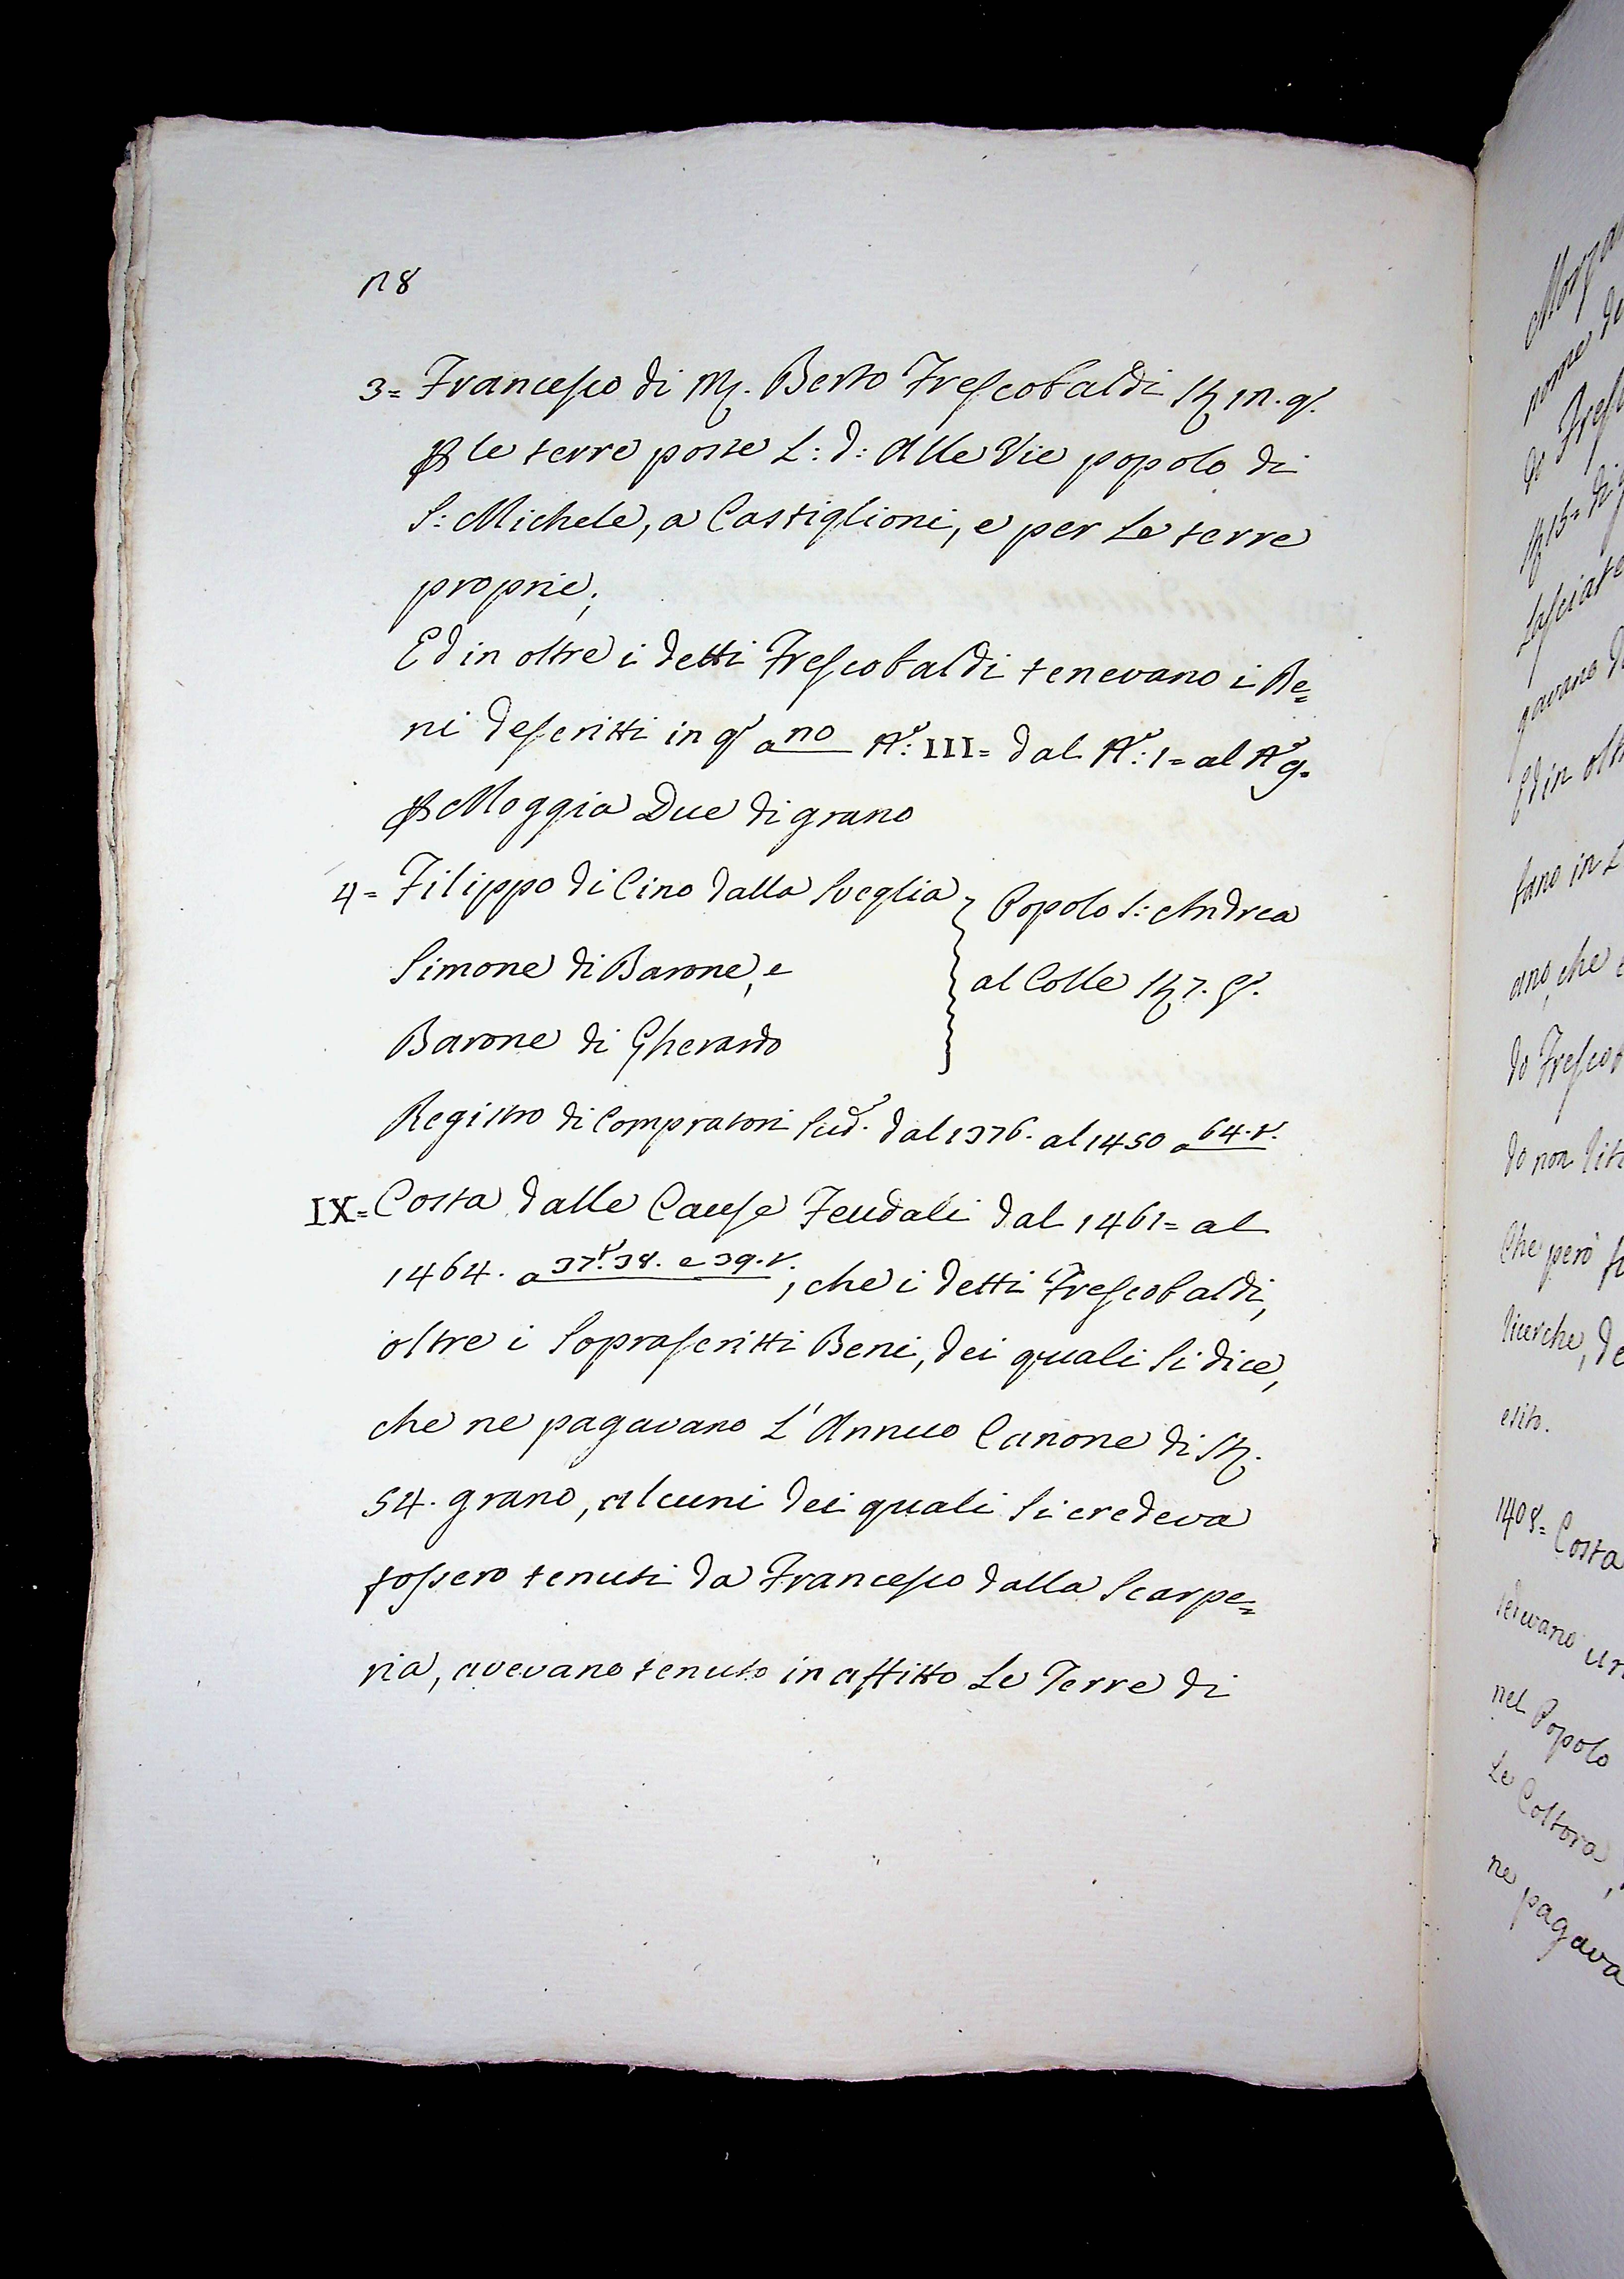 118
3= Francesco di M. Berto Frescobaldi St. 12. g.
P le terre poste L: d: Alle Vie popolo di
S: Michele, a Castiglioni, e per Le terre
proprie;
Ed in oltre i detti Frescobaldi tenevano i Be=
ni descritti in q.º a 110 N.º: III= dal N.º: 1= al N.º 9.
P Moggia Due di grano
4= Filippo di Cino dalla Sveglia
Simone di Barone, e
Barone di Gherardo
Popolo S: Andrea
al Colle St. 7. g.
Registro di Compratori Sud.º dal 1376. al 1450 a 64.t.
IX= Costa dalle Cause Feudali dal 1461= al
1464. a 37.t 38. e 39.t., che i detti Frescobaldi,
oltre i Soprascritti Beni, dei quali Si dice,
che ne pagavano L'Annuo Canone di St.
54. grano, alcuni dei quali Si credeva
fossero tenuti da Francesco dalla Scarpe=
ria, avevano tenuto in affitto Le Terre di
nome
lasciate
gavano
Ed in olt
tano in L
ano, che
do Frescob
do non
Che però
ricerche, de
esito.
1408= Costa
nel Popolo
Le Coltora,
ne pagava